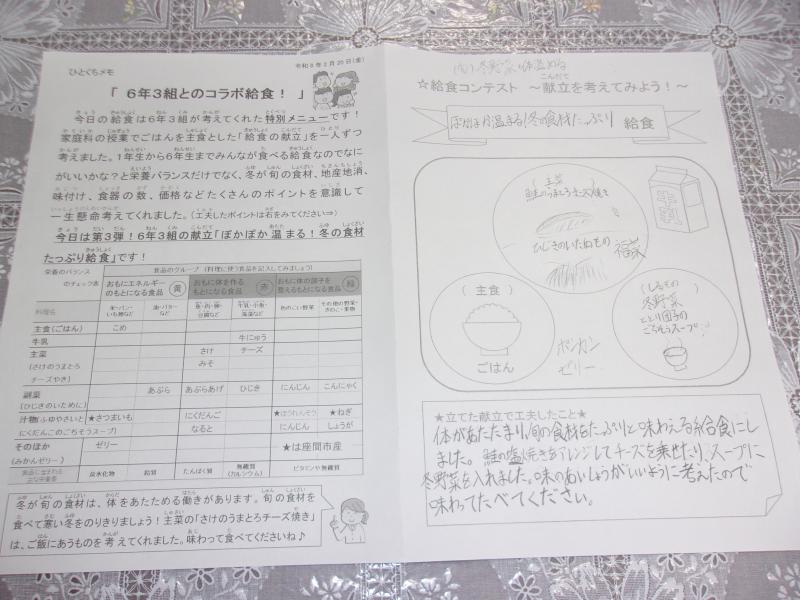 ひとくちメモ
「 6年3組とのコラボ給食！ 」
今日の給食は6年3組が考えてくれた特別メニューです！
家庭科の授業でごはんを主食とした「給食の献立」を一人ずつ
考えました。1年生から6年生までみんなが食べる給食なのでなに
がいいかな？と栄養バランスだけでなく、冬が旬の食材、地産地消、
味付け、食器の数、価格などたくさんのポイントを意識して
一生懸命考えてくれました。（工夫したポイントは右をみてください⇒）
今日は第3弾！6年3組の献立「ぽかぽか温まる！冬の食材
たっぷり給食」です！
栄養のバランス
のチェック表
食品のグループ（料理に使う食品を記入してみましょう）
おもにエネルギー
のもとになる食品
黄
おもに体を作る
もとになる食品
赤
おもに体の調子を
整えるもとになる食品
緑
料理名
主食(ごはん)
こめ
牛乳
牛にゅう
主菜
(さけのうまとろ
チーズやき)
さけ
みそ
チーズ
副菜
(ひじきのいために)
あぶら
あぶらあげ
ひじき
にんじん
こんにゃく
汁物(ふゆやさいと
にくだんごのごちそうスープ)
★さつまいも
にくだんご
なると
★ほうれんそう
にんじん
★ねぎ
しょうが
そのほか
(みかんゼリー)
ゼリー
★は座間市産
炭水化物
脂質
たんぱく質
無機質
(カルシウム)
ビタミンや無機質
冬が旬の食材は、体をあたためる働きがあります。旬の食材を
食べて寒い冬をのりきりましょう！主菜の「さけのうまとろチーズ焼き」
は、ご飯にあうものを考えてくれました。味わって食べてくださいね♪
☆給食コンテスト ～献立を考えてみよう！～
ぽかぽか温まる！冬の食材たっぷり 給食
(主菜)
鮭のうまとろチーズ焼き
ひじきのいためもの
副菜
牛乳
(主食)
ごはん
ポンカン
ゼリー
(しるもの)
冬野菜
ととり団子の
ごちそうスープ！
★立てた献立で工夫したこと★
体があたたまり、旬の食材をたっぷりと味わえる給食にし
ました。鮭の塩焼きをアレンジしてチーズを乗せたり、スープに
冬野菜を入れました。味のあいしょうがいいように考えたので
味わってたべてください。